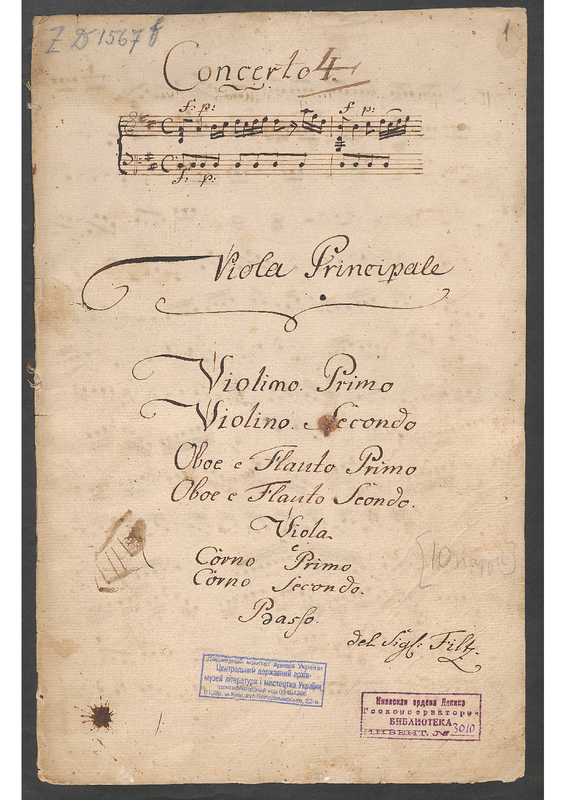 Z D 1567 f
1
Concerto 4.
f: p: f p:
f: p:
Viola Principale
Violino. Primo
Violino. Secondo
Oboe e Flauto Primo
Oboe e Flauto Scondo.
Viola
Corno Primo
Corno Secondo.
Basso.
del Sigl: Filtz.
Державний комітет архівів України
Центральний державний архів-
музей літератури і мистецтва України
Киевская ордена Ленина
Госконсерватория
БИБЛИОТЕКА
ИНВЕНТ. № 3010